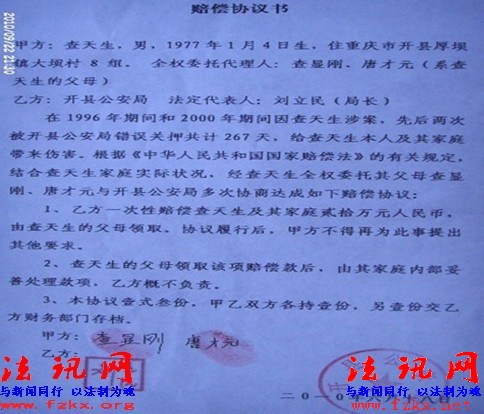 2010/09/22 21:30
赔偿协议书
甲方：查天生，男，1977年1月4日生，住重庆市开县厚坝
镇大坝村8组。 全权委托代理人：查显刚、唐才元（系查
天生的父母）
乙方：开县公安局 法定代表人：刘立民（局长）
在1996年期间和2000年期间因查天生涉案，先后两次
被开县公安局错误关押共计267天，给查天生本人及其家庭
带来伤害。根据《中华人民共和国国家赔偿法》的有关规定，
结合查天生家庭实际状况，经查天生全权委托其父母查显
刚、唐才元与开县公安局多次协商达成如下赔偿协议：
1、乙方一次性赔偿查天生及其家庭贰拾万元人民币，
由查天生的父母领取。协议履行后，甲方不得再为此事提出
其他要求。
2、查天生的父母领取该项赔偿款后，由其家庭内部妥
善处理款项，乙方概不负责。
3、本协议壹式叁份，甲乙双方各持壹份，另壹份交乙
方财务部门存档。
甲方：查显刚 唐才元
乙方：
二0一0年
法讯网
与新闻同行 以法制为魂
www.fzkx.org
法讯网
与新闻同行 以法制为魂
http://www.fzkx.org